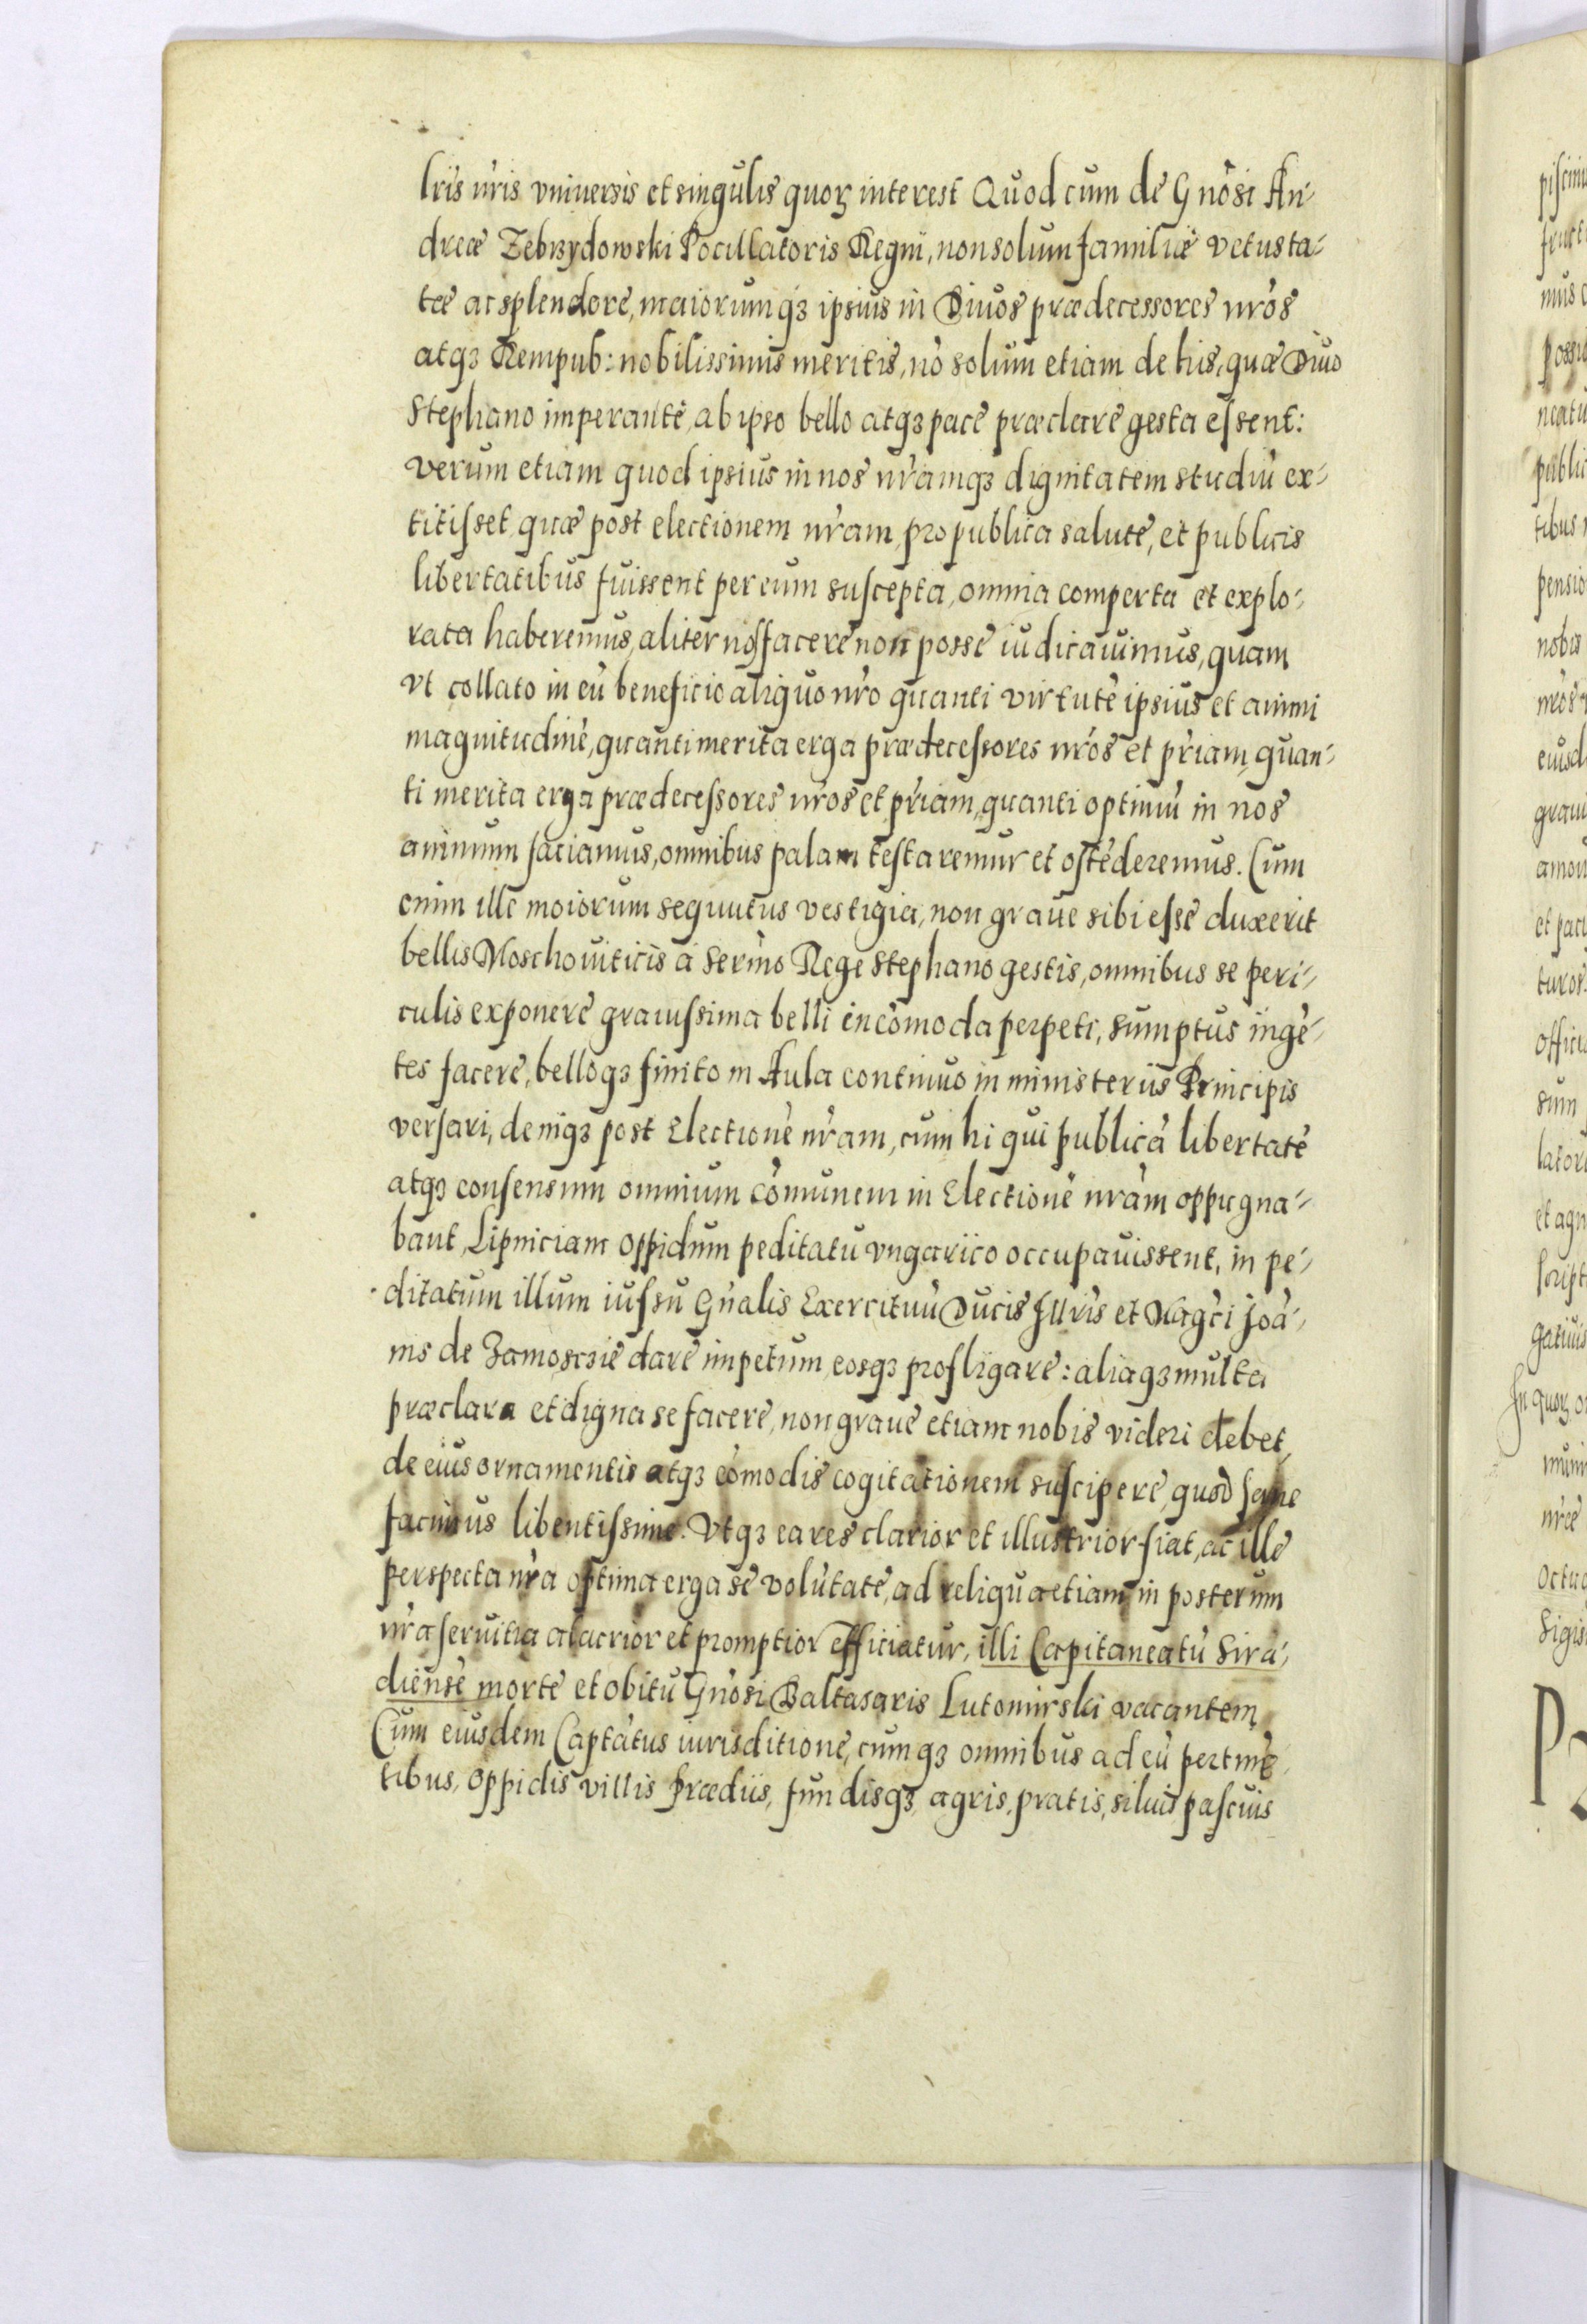 lris nris vniuersis et singulis quorꝫ interest Quod cum de Gnosi An-
dreæ Zebrzydowski Pocillatoris Regni, non solum familiæ vetusta-
te ac splendore, maiorumqꝫ ipsius in Diuos prædecessores nros
atqꝫ Rempub: nobilissimis meritis, nò solum etiam de his, quæ Diuo
Stephano imperante, ab ipso bello atqꝫ pace præclare gesta essent:
verum etiam quod ipsius in nos nramqꝫ dignitatem studiù ex-
titisset, quæ post electionem nram, pro publica salute, et publicis
libertatibus fuissent per eum suscepta, omnia comperta et explo-
rata haberemus, aliter nos facere non posse iudicauimus, quam
vt collato in eù beneficio aliquo nro quanti virtute ipsius et animi
magnitudinè, quanti merita erga prædecessores nros et priam, quan-
ti merita erga prædecessores nros et priam, quanti optimù in nos
animum faciamus, omnibus palam testaremur et ostèderemus. Cum
enim ille moiorum sequutus vestigia, non graue sibi esse duxerit
bellis Moschouiticis à Sermo Rege Stephano gestis, omnibus se peri-
culis exponere grauissima belli incòmoda perpeti, sumptus ingè-
tes facere, belloqꝫ finito in Aula continuo in ministeriis Principis
versari, deniqꝫ post Electionè nram, cum hi qui publicà libertatè
atqꝫ consensum omnium còmunem in Electionè nràm oppugna-
bant, Lipniciam oppidum peditatu vngarico occupauissent, in pe-
ditatum illum iussu Gnalis Exercituù Ducis Illris et Magci Joà-
nis de Zamoscie dare impetum, eosqꝫ profligare: aliaqꝫ multa
præclara et digna se facere, non graue etiam nobis videri debet,
de eius ornamentis atqꝫ còmodis cogitationem suscipere, quod sane
facimus libentissime. Vtqꝫ ea res clarior et illustrior fiat, ac ille
perspecta nra optima erga se volùtate, ad reliqua etiam in posterum
nra seruitia alacrior et promptior efficiatur, illi Capitaneatù Sira-
diensè morte et obitu Gnosi Baltasaris Lutomirski vacantem
Cum eiusdem Captatus iurisditione, cumqꝫ omnibus ad eù pertinè-
tibus, oppidis villis Prædiis, fundisqꝫ, agris, pratis, siluis pascuis